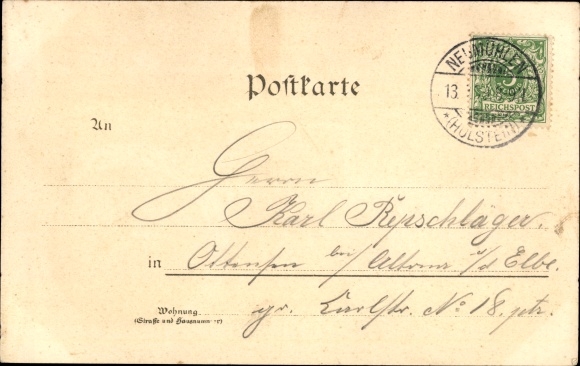 NEUMÜHLEN
13.
*(HOLSTEIN)
5
REICHSPOST
Postkarte
An
Herrn
Karl Repschläger.
in Ottensen bei/ Altona a/d Elbe.
Wohnung
(Straße und Hausnummer)
gr. Carlstr. No 18. ptr.